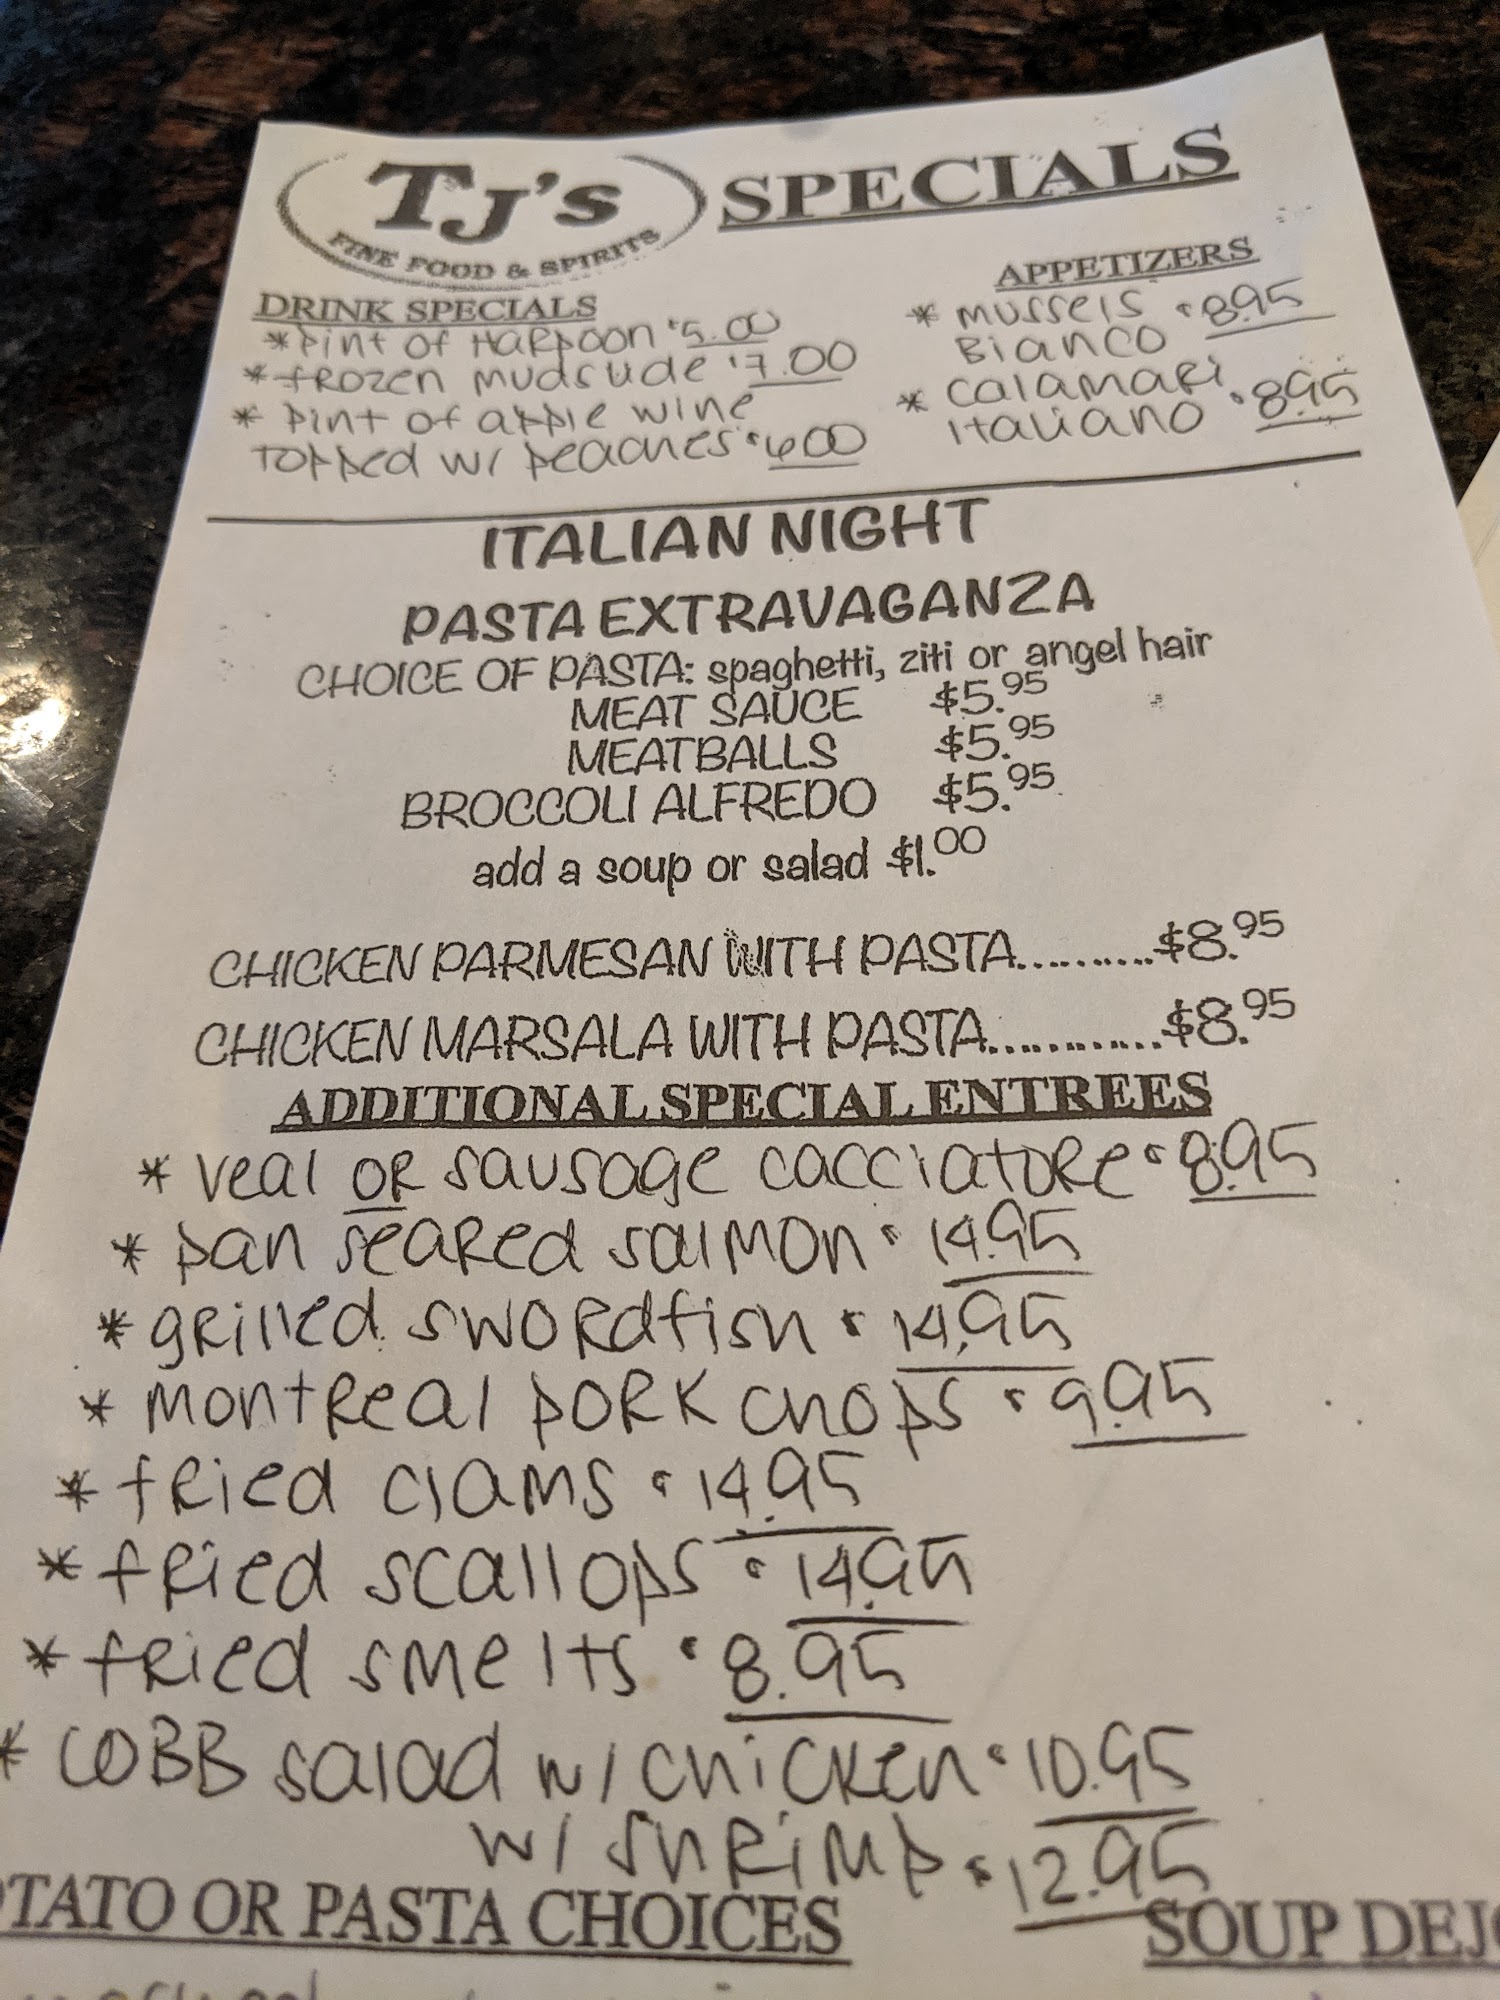 TJ's
FINE FOOD & SPIRITS
SPECIALS
DRINK SPECIALS
* Pint of Harpoon $5.00
* frozen mudslide $7.00
* pint of apple wine
topped w/ peaches $6.00
APPETIZERS
* mussels $8.95
Bianco
* calamari
italiano $8.95
ITALIAN NIGHT
PASTA EXTRAVAGANZA
CHOICE OF PASTA: spaghetti, ziti or angel hair
MEAT SAUCE $5.95
MEATBALLS $5.95
BROCCOLI ALFREDO $5.95
add a soup or salad $1.00
CHICKEN PARMESAN WITH PASTA..........$8.95
CHICKEN MARSALA WITH PASTA............$8.95
ADDITIONAL SPECIAL ENTREES
* veal OR sausage cacciatore $8.95
* pan seared salmon $14.95
* grilled swordfish $14.95
* montreal pork chops $9.95
* fried clams $14.95
* fried scallops $14.95
* fried smelts $8.95
* COBB salad w/ chicken $10.95
w/ shrimp $12.95
OTATO OR PASTA CHOICES
SOUP DEJ